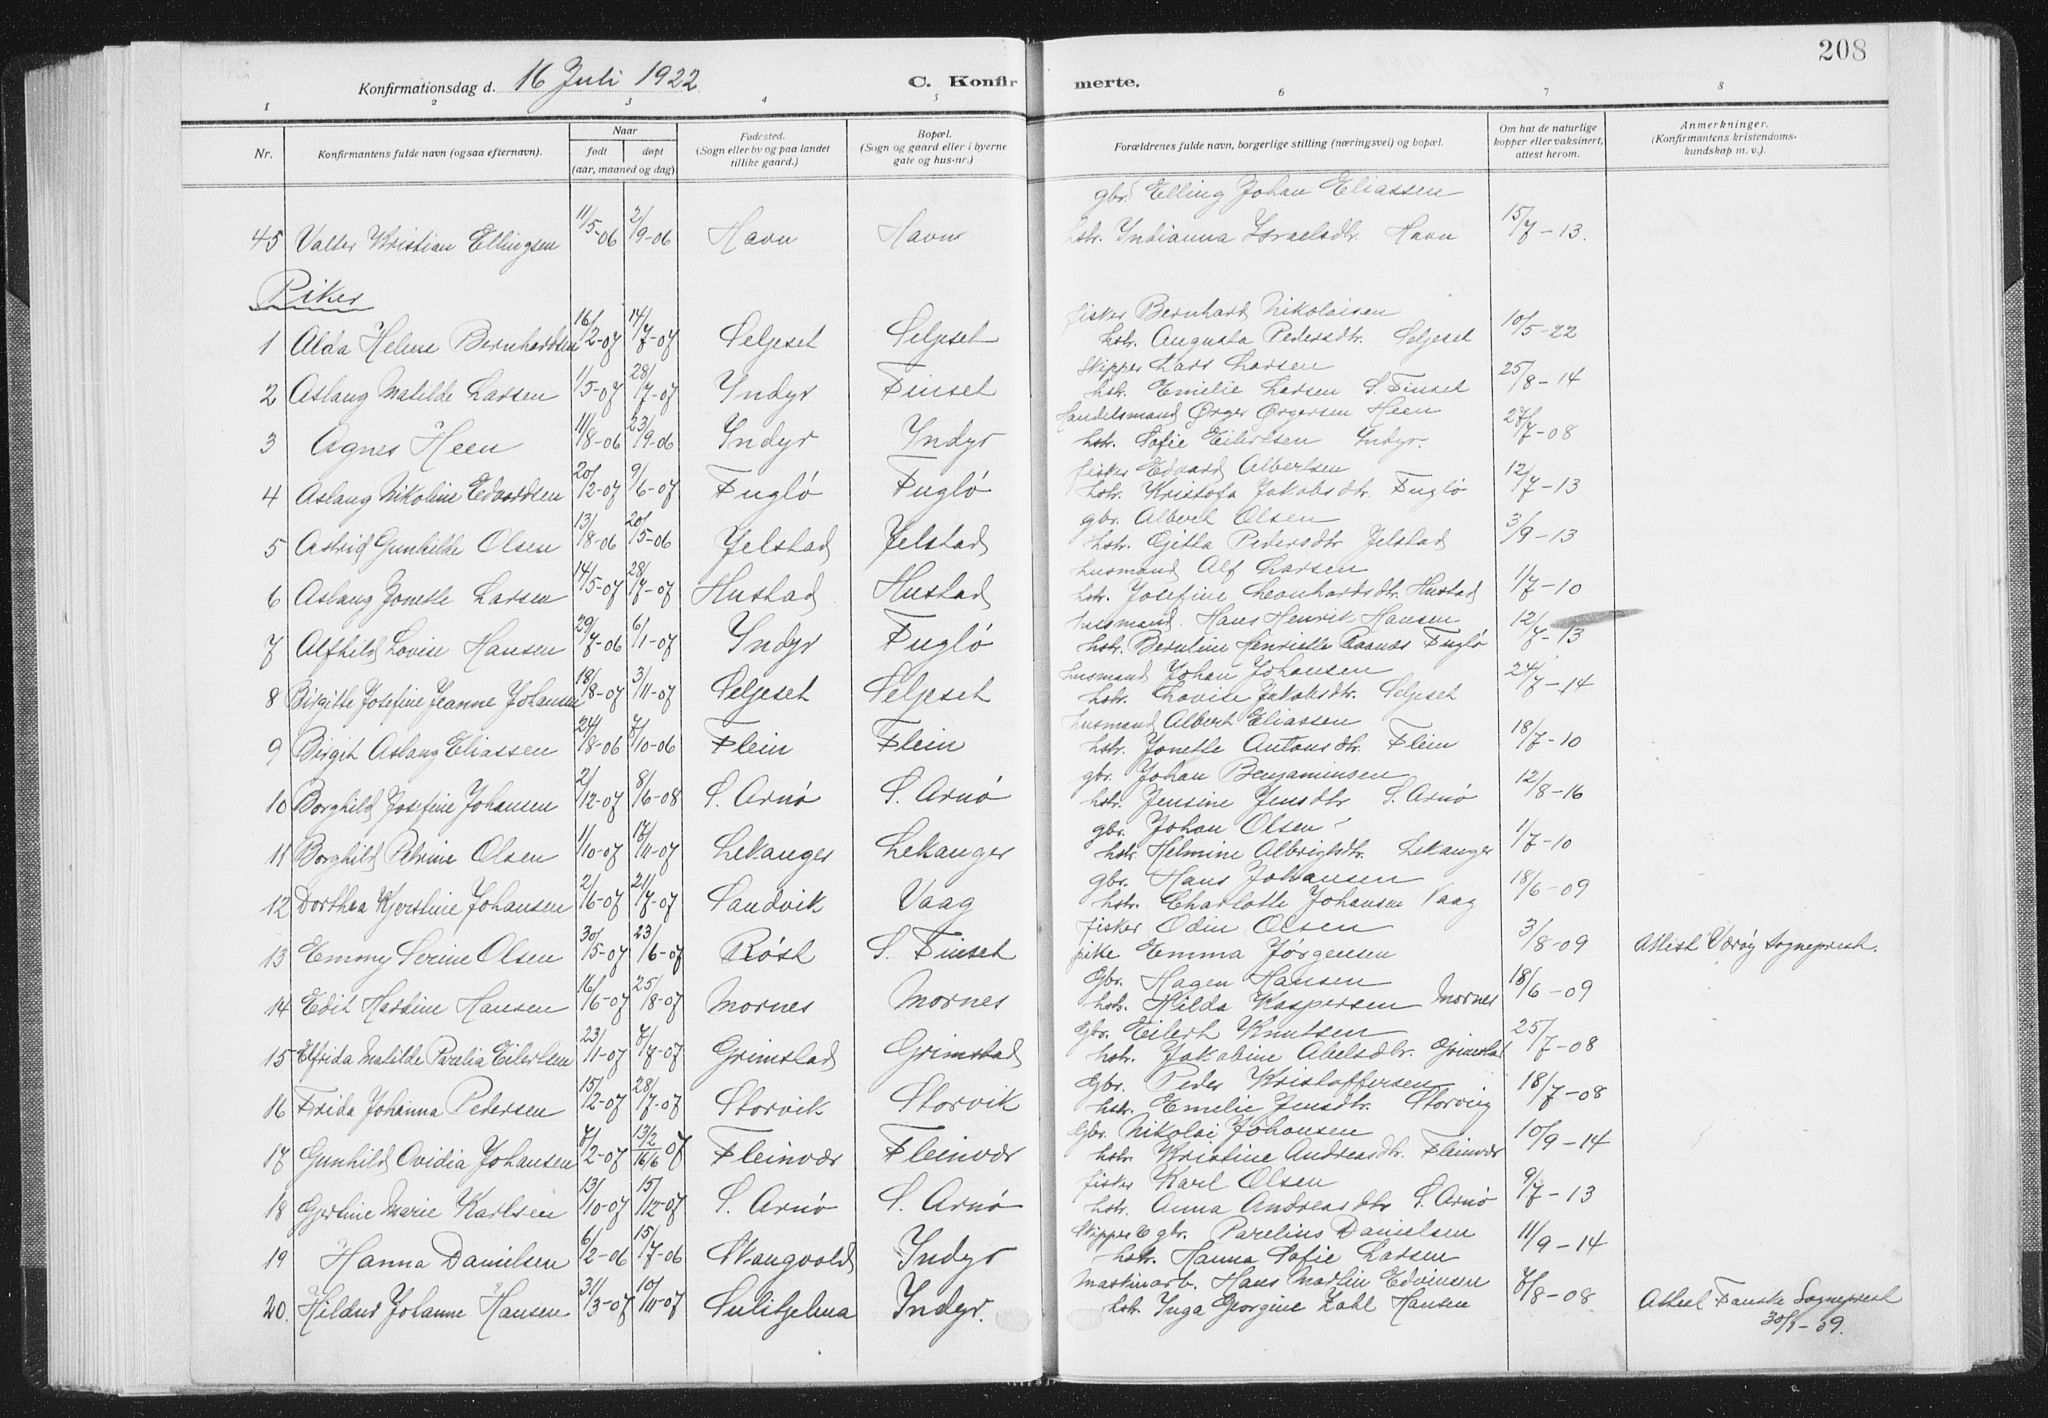 208
Konfirmationsdag d. 16 Juli 1922
C. Konfirmerte.
1 2 3 4 5 6 7 8
Nr.
Konfirmantens fulde navn (ogsaa efternavn).
Naar
født døpt
(aar, maaned og dag)
Fødested.
(Sogn eller by og paa landet
tillike gaard.)
Bopæl.
(Sogn og gaard eller i byerne
gate og hus-nr.)
Forældrenes fulde navn, borgerlige stilling (næringsvei) og bopæl.
Om hat de naturlige
kopper eller vaksinert,
attest herom.
Anmerkninger.
(Konfirmantens kristendoms-
kundskap m. v.).
gbr. Elling Johan Eliassen
45 Valter Kristian Ellingsen 11/5-06 2/9-06 Havn Havn hstr. Indianna Israelsdtr. Havn 15/7-13.
Piker
fisker Bernhard Nikolaisen
1 Alda Helene Bernhardtsen 16/2-07 14/7-07 Seljeset Seljeset hstr. Augusta Pedersdtr. Seljeset 10/5-22
Skipper Lars Larsen
2 Aslaug Matilde Larsen 1/5-07 28/7-07 Indyr Finset hstr. Emilie Larsen S. Finset 25/8-14
Handelsmand Ørger Ørgersen Heen
3 Agnes Heen 11/8-06 23/9-06 Indyr Indyr hstr. Sofie Eilertsen Indyr. 27/7-08
fisker Edvard Albertsen
4 Aslaug Nikoline Edvardtsen 20/12-07 9/6-07 Fuglø Fuglø hstr. Kristofa Jakobsdtr. Fuglø 12/7-13
gbr. Albert Olsen
5 Astrid Gunhilde Olsen 13/8-06 20/5-06 Jelstad Jelstad hstr. Gitta Pedersdtr Jelstad 3/9-13
husmand Alf Larsen
6 Aslaug Jonette Larsen 14/5-07 28/7-07 Hustad Hustad hstr. Josefine Leonhardsdtr. Hustad 1/7-10
husmand. Hans Henrik Hansen
7 Alfhild Lovise Hansen 29/7-06 6/1-07 Indyr Fuglø hstr. Berntine Henriette Raanes Fuglø 12/7-13
husmand Johan Johansen
8 Birgitte Josefine Jeanne Johansen 18/8-07 3/11-07 Seljeset Seljeset hstr. Lovise Jakobsdtr. Seljeset 24/7-14
husmand Albert Eliassen
9 Birgit Aslaug Eliassen 24/8-06 7/10-06 Flein Flein hstr. Jonette Antonsdtr. Flein 18/7-10
gbr. Johan Benjaminsen
10 Borghild Josefine Johansen 2/12-07 8/6-08 S. Arnø S. Arnø hstr. Jensine Jensdtr S. Arnø 12/8-16
gbr. Johan Olsen
11 Borghild Petrine Olsen 1/10-07 17/11-07 Lekanger Lekanger hstr. Helmine Albrigtsdtr. Lekanger 1/7-10
gbr. Hans Johansen
12 Dorthea Kjerstine Johansen 2/6-07 21/7-07 Sandvik Vaag hstr. Charlotte Johansen Vaag 18/6-09
fisker Odin Olsen
13 Emmy Serine Olsen 30/5-07 23/6-07 Røst S. Finset pike Emma Jørgensen 3/8-09 Attest Værøy Sogneprest.
Gbr. Hagen Hansen
14 Edit Hartine Hansen 16/6-07 25/8-07 Mornes Mornes hstr. Hilda Kaspersen Mornes 18/6-09
Gbr. Eilert Knutsen
15 Elfrida Matilde Parelia Eilertsen 23/11-07 7/7-07 Grimstad Grimstad hstr. Jakobine Abelsdtr. Grimstad 25/7-08
Gbr. Peder Kristoffersen
16 Frida Johanna Pedersen 15/2-07 28/7-07 Storvik Storvik hstr. Emelie Jensdtr. Storvig 18/7-08
Gbr. Nikolai Johansen
17 Gunhild Ovidia Johansen 7/2-07 13/2 16/6 07 Fleinvær Fleinvær hstr. Kristine Andreasdtr. Fleinvær 10/9-14
fisker Karl Olsen
18 Gjertine Marie Karlsen 13/10-07 15/12-07 S. Arnø S. Arnø hstr. Anna Andreasdtr S. Arnø 9/7-13
Skipper & gbr. Parelius Danielsen
19 Hanna Danielsen 6/2-06 15/7-06 Skaugvold Indyr hstr. Hanna Sofie Larsen 11/9-14
Maskinarb. Hans Martin Edvinsen
20. Hildur Johanne Hansen 31/3-07 10/11-07 Sulitjelma Indyr. hstr. Inga Georgine Zahl Hansen 7/8-08 Attest Fauske Sogneprest
30/1-09.